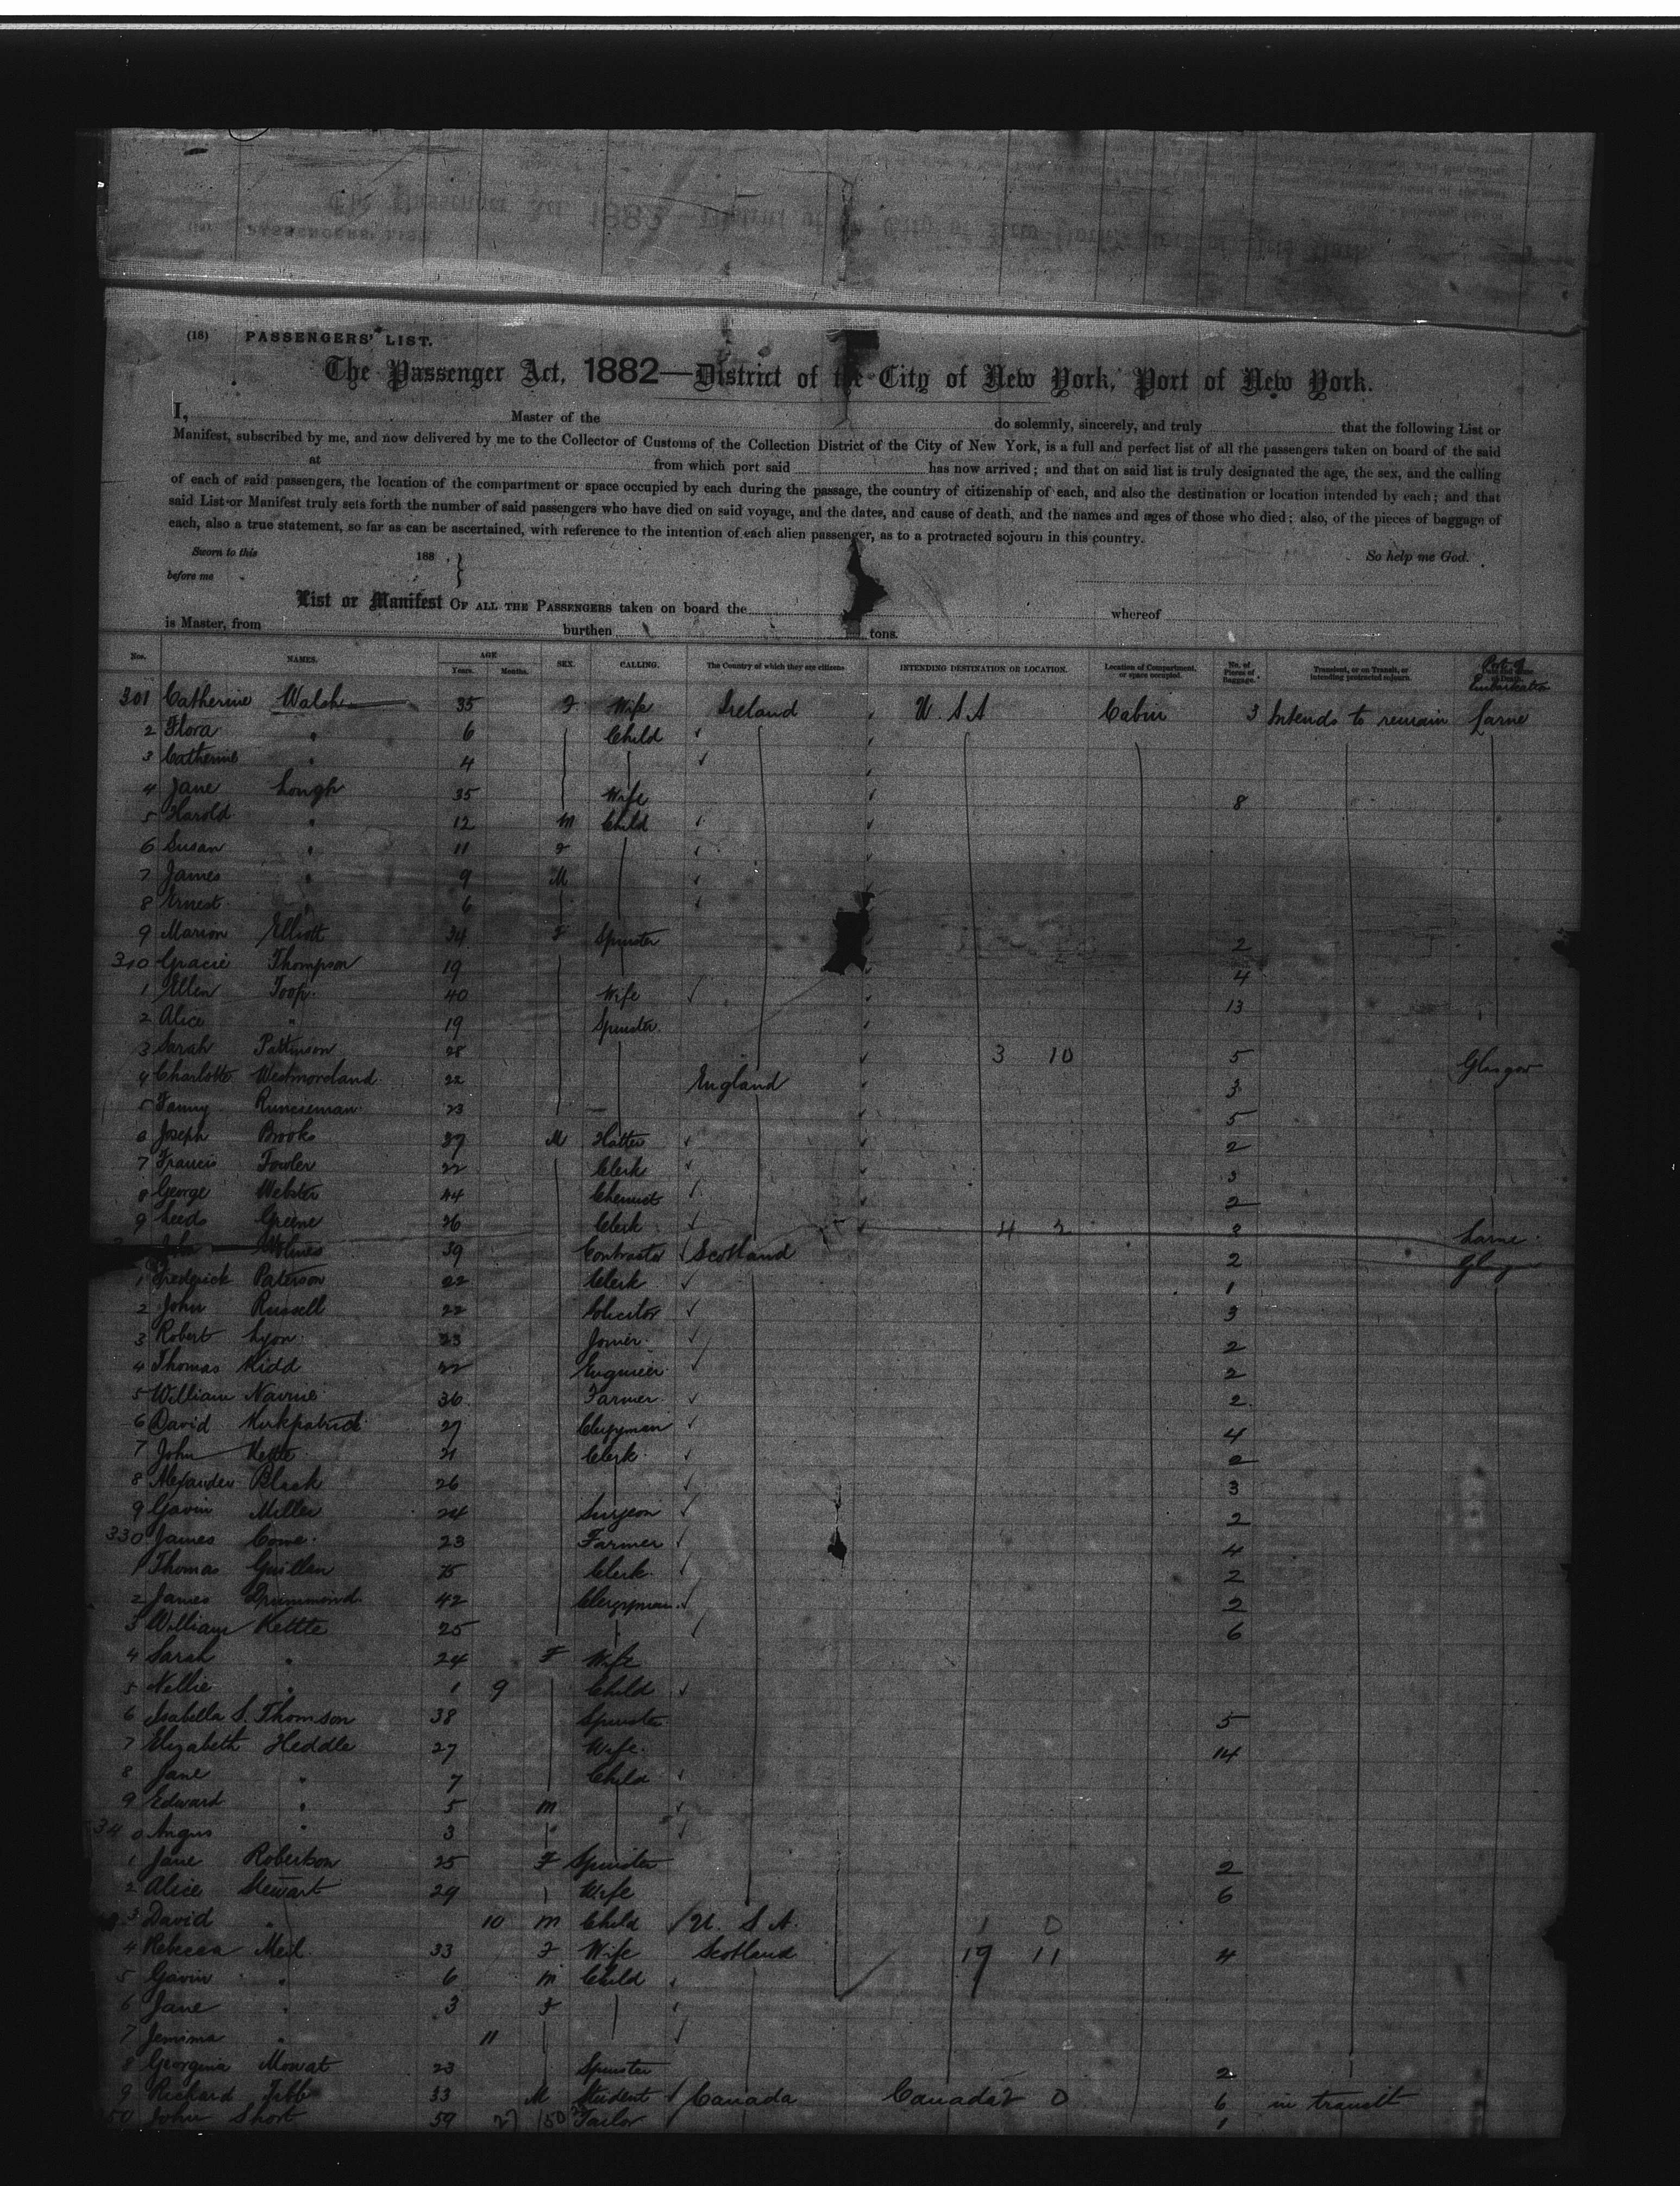 (18) PASSENGERS' LIST.
The Passenger Act, 1882—District of the City of New York, Port of New York.
I, Master of the do solemnly, sincerely, and truly that the following List or
Manifest, subscribed by me, and now delivered by me to the Collector of Customs of the Collection District of the City of New York, is a full and perfect list of all the passengers taken on board of the said
at from which port said has now arrived; and that on said list is truly designated the age, the sex, and the calling
of each of said passengers, the location of the compartment or space occupied by each during the passage, the country of citizenship of each, and also the destination or location intended by each; and that
said List or Manifest truly sets forth the number of said passengers who have died on said voyage, and the dates, and cause of death, and the names and ages of those who died; also, of the pieces of baggage of
each, also a true statement, so far as can be ascertained, with reference to the intention of each alien passenger, as to a protracted sojourn in this country.
Sworn to this 188 So help me God.
before me
List or Manifest OF ALL THE PASSENGERS taken on board the whereof
is Master, from burthen tons.
Nos. NAMES. AGE Years. Months. SEX. CALLING. The Country of which they are citizens INTENDING DESTINATION OR LOCATION. Location of Compartment, or space occupied. No. of Pieces of Baggage. Transient, or on Transit, or intending protracted sojourn. Port of Embarkation
301 Catherine Walsh 35 F Wife Ireland U.S.A Cabin 3 Intends to remain Larne
2 Flora " 6 Child
3 Catherine " 4
4 Jane Lough 35 Wife 8
5 Harold " 12 M Child
6 Susan " 11 F
7 James " 9 M
8 Ernest " 6
9 Marion Elliott 34 F Spinster 2
310 Gracie Thompson 19 4
1 Ellen Toop 40 Wife 13
2 Alice " 19 Spinster
3 Sarah Pattinson 28 3 10 5 Glasgow
4 Charlotte Westmoreland 22 England 3
5 Fanny Runcieman 23 5
6 Joseph Brooks 37 M Hatter 2
7 Francis Fowler 22 Clerk 3
8 George Webster 44 Chemist 2
9 Leeds Greene 26 Clerk 4 2 3 Larne
John Holmes 39 Contractor Scotland 2 Glasgow
1 Frederick Paterson 22 Clerk 1
2 John Russell 22 Solicitor 3
3 Robert Lyon 23 Joiner 2
4 Thomas Kidd 22 Engineer 2
5 William Nairne 36 Farmer 2
6 David Kirkpatrick 27 Clergyman 4
7 John Kettle 21 Clerk 2
8 Alexander Black 26 3
9 Gavin Miller 24 Surgeon 2
330 James Cowe 23 Farmer 4
1 Thomas Guillan 25 Clerk 2
2 James Drummond 42 Clergyman 2
3 William Kettle 25 6
4 Sarah " 24 F Wife
5 Nellie " 1 9 Child
6 Isabella S. Thomson 38 Spinster 5
7 Elizabeth Heddle 27 Wife 14
8 Jane " 7 Child
9 Edward " 5 M
340 Angus " 3
1 Jane Robertson 25 F Spinster 2
2 Alice Stewart 29 Wife 6
3 David " 10 M Child U. S. A. 1 0
4 Rebecca Meil 33 F Wife Scotland 19 11 4
5 Gavin " 6 M Child
6 Jane " 3 F
7 Jemima " 11
8 Georgina Mowat 23 Spinster 2
9 Richard Tibb 33 M Student Canada Canada 2 0 6 in transit
50 John Short 59 27 Tailor 1